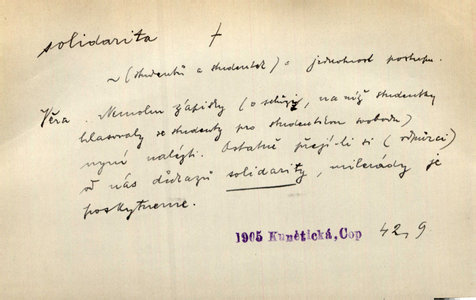 solidarita +
~ (studentů a studentek) = jednotnost postupu.
Věra. Nemohu zápisky (o schůzi, na níž studentky
hlasovaly se studenty pro studentskou svobodu)
nyní nalézti. Ostatně přejí-li si (odpůrci)
od nás důkazů solidarity, milerády je
poskytneme.
1905 Kunětická, Cop 42, 9